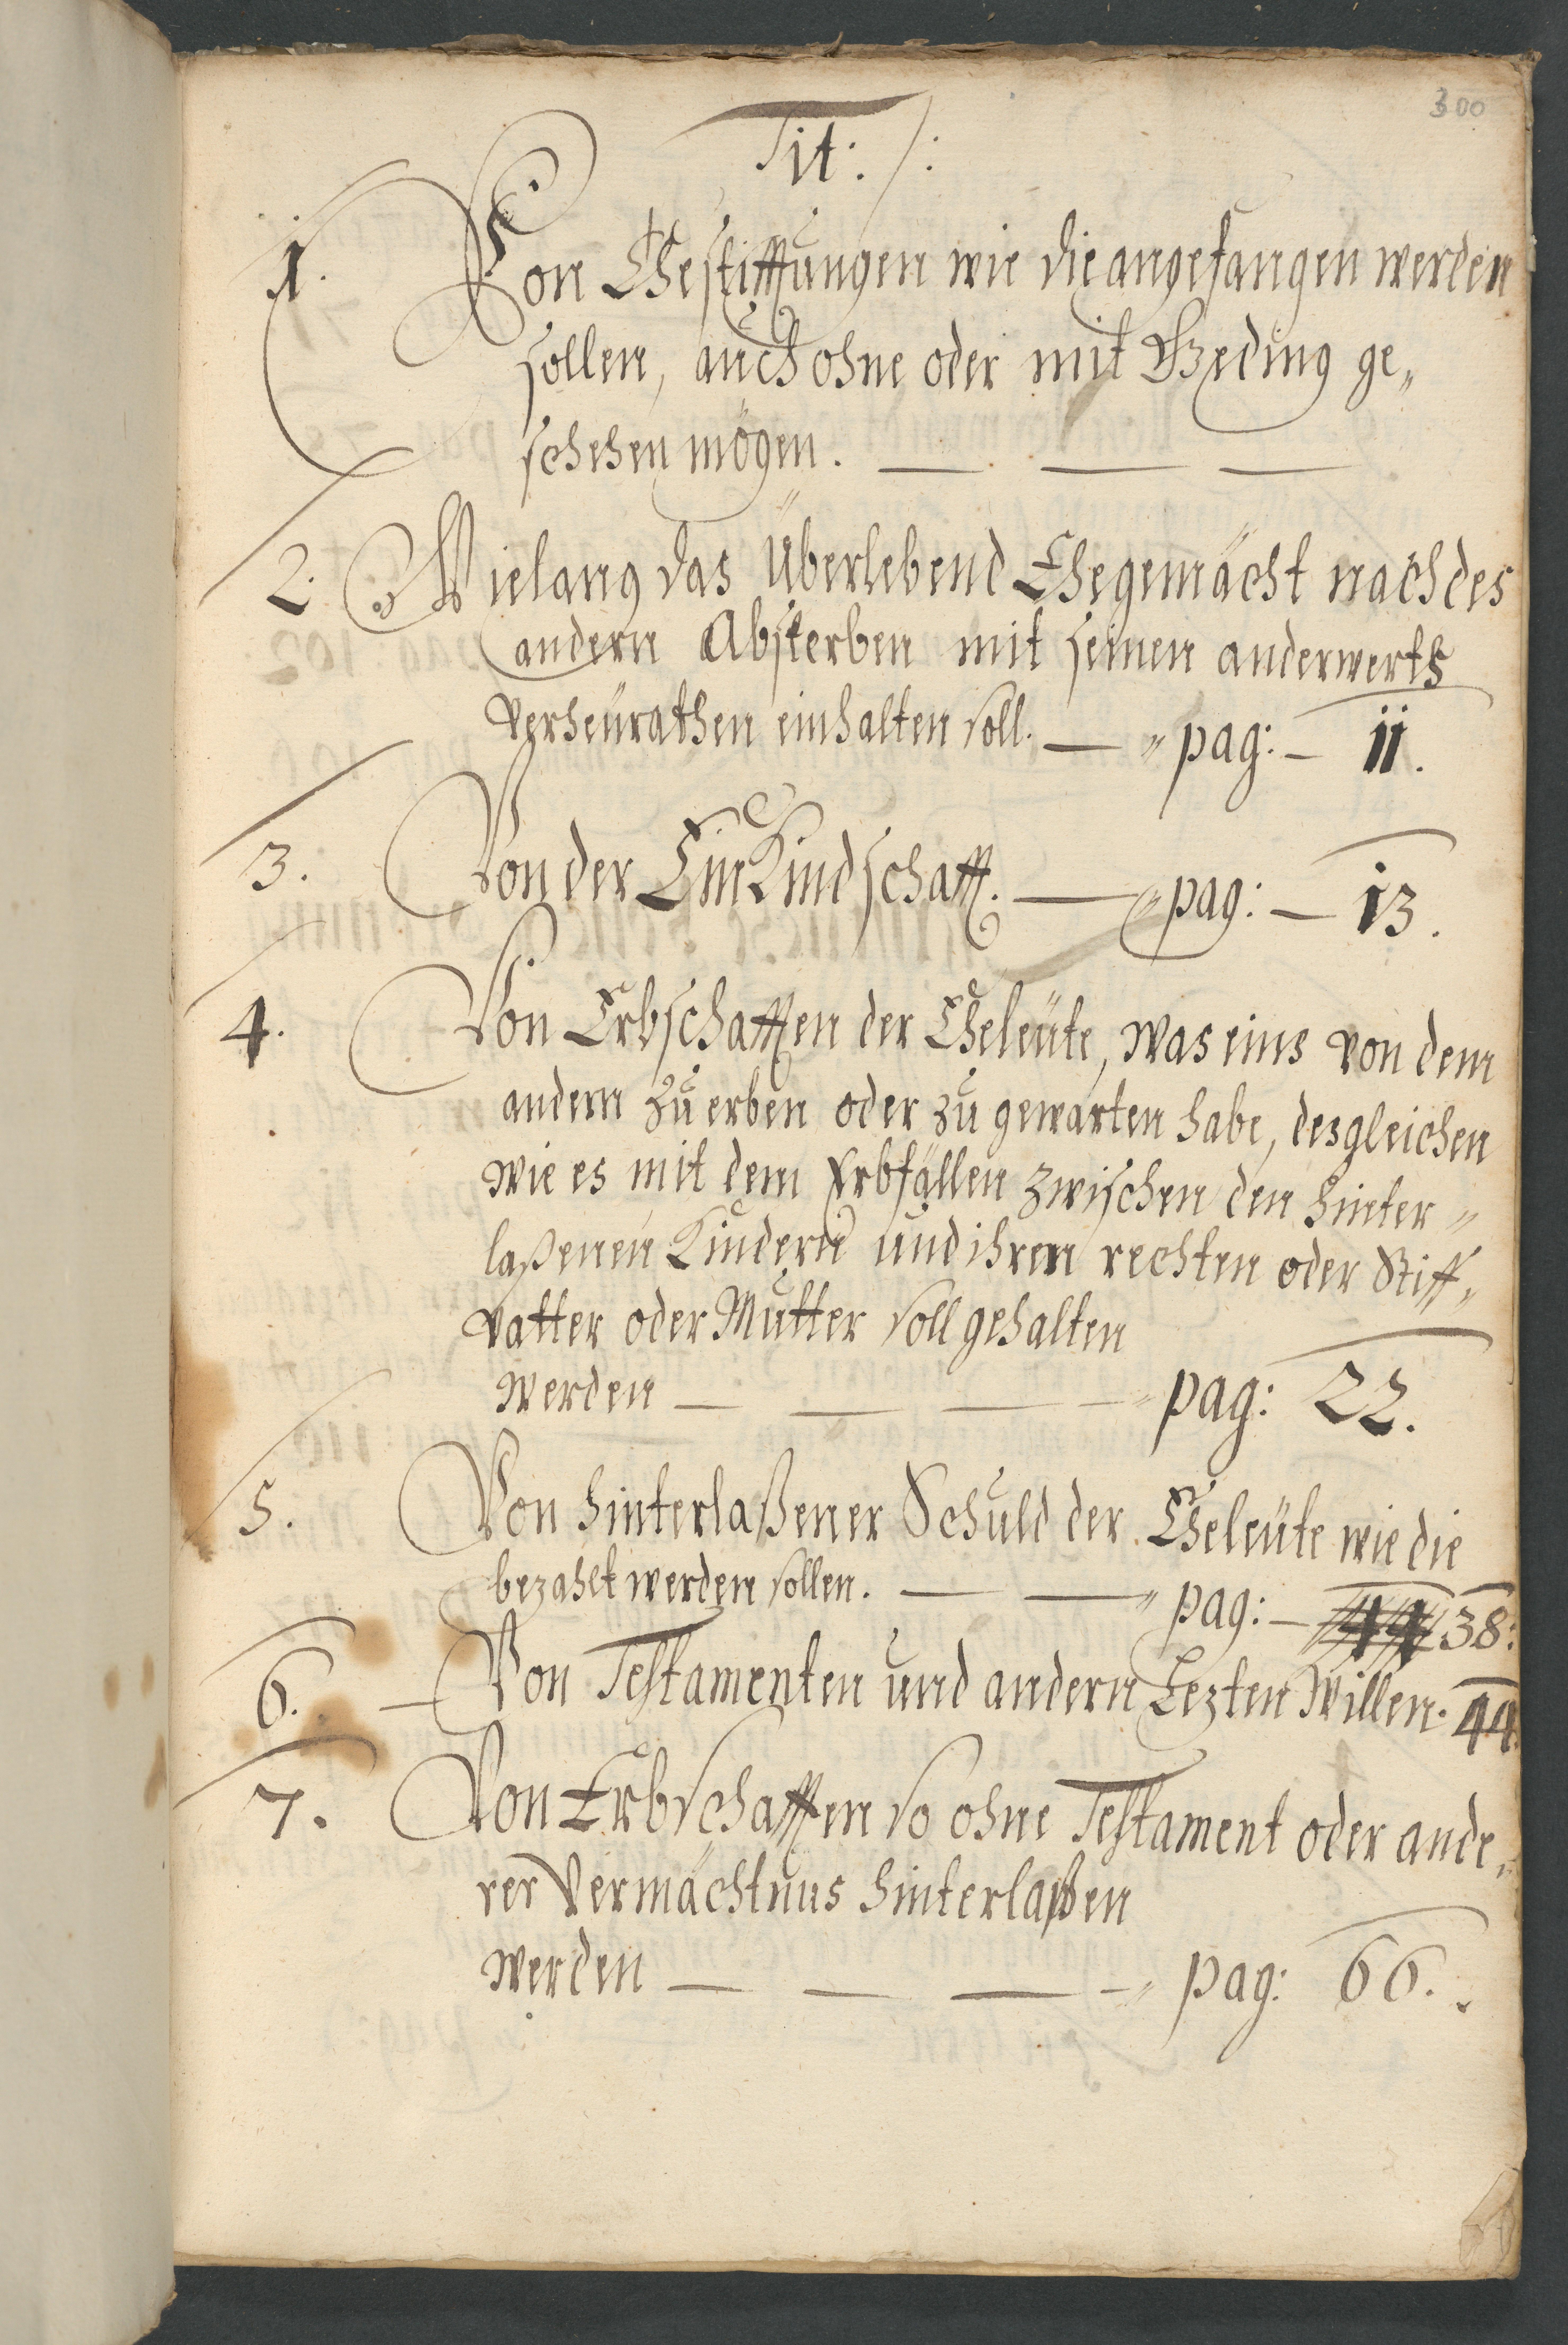 300
Tit: /:
1. Von Ehestifftungen wie die angefangen werden
sollen, auch ohne oder mit Geding ge„
schehen mögen. — — —
2. Wielang das Überlebend Ehegemächt nach des
andern Absterben mit seinen anderwerts
verheürathen einhalten soll. — „ pag: — ii.
3. Von der EinKindschafft. — „ pag: — i3.
4. Von Erbschafften der Eheleüte, was eins von dem
andern zu erben oder zu gewarten habe, desgleichen
wie es mit dem Erbfällen zwischen den hinter„
laßenen Kindern und ihren rechten oder Stiff„
vatter oder Mutter soll gehalten
werden — — — — „ pag: 22.
5. Von hinterlaßener Schuld der Eheleüte wie die
bezahlt werden sollen. — — „ pag: — 44 38:
6. — Von Testamenten und andern Lezten Willen. 44.
7. Von Erbschafften so ohne Testament oder ande„
rer Vermächtnus hinterlaßen
werden — — — — „ pag: 66.